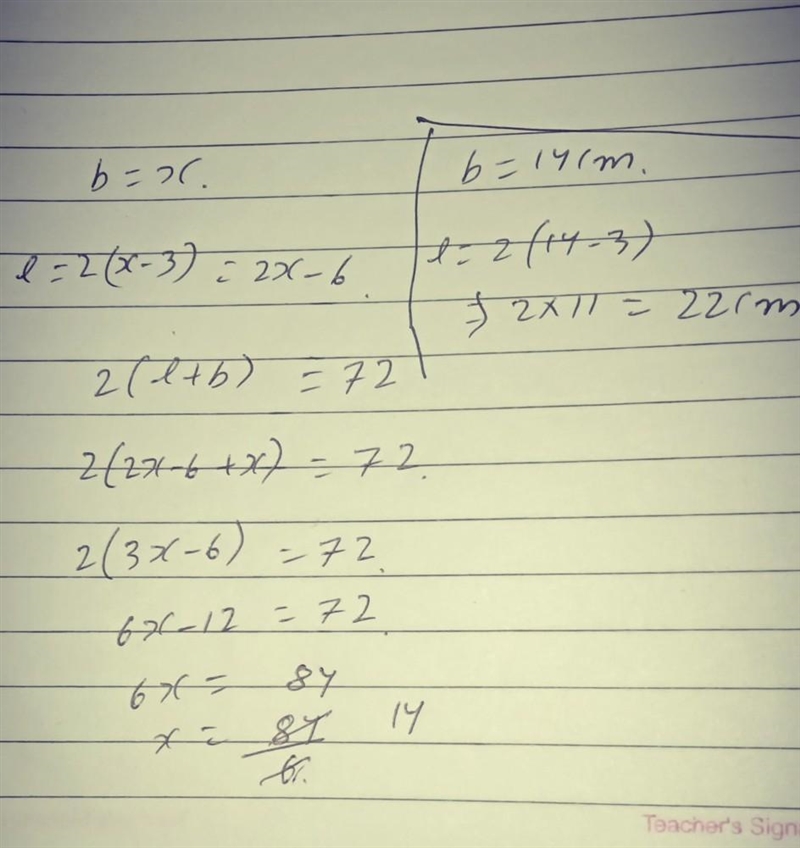 b = x.
l = 2(x-3) = 2x-6.
2(l+b) = 72
2(2x-6+x) = 72.
2(3x-6) = 72.
6x-12 = 72.
6x = 84
x = 84/6. 14
b = 14cm.
l = 2(14-3)
⇒ 2×11 = 22cm
Teacher's Sign